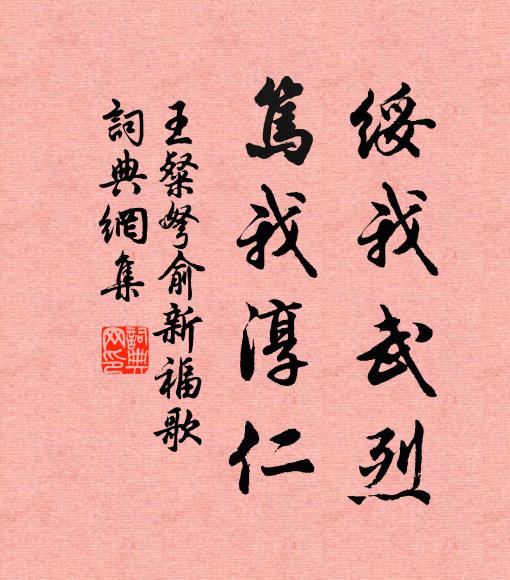 綏我武烈
篤我淳仁
王粲弩俞新福歌
詞典網集
詞典
网印